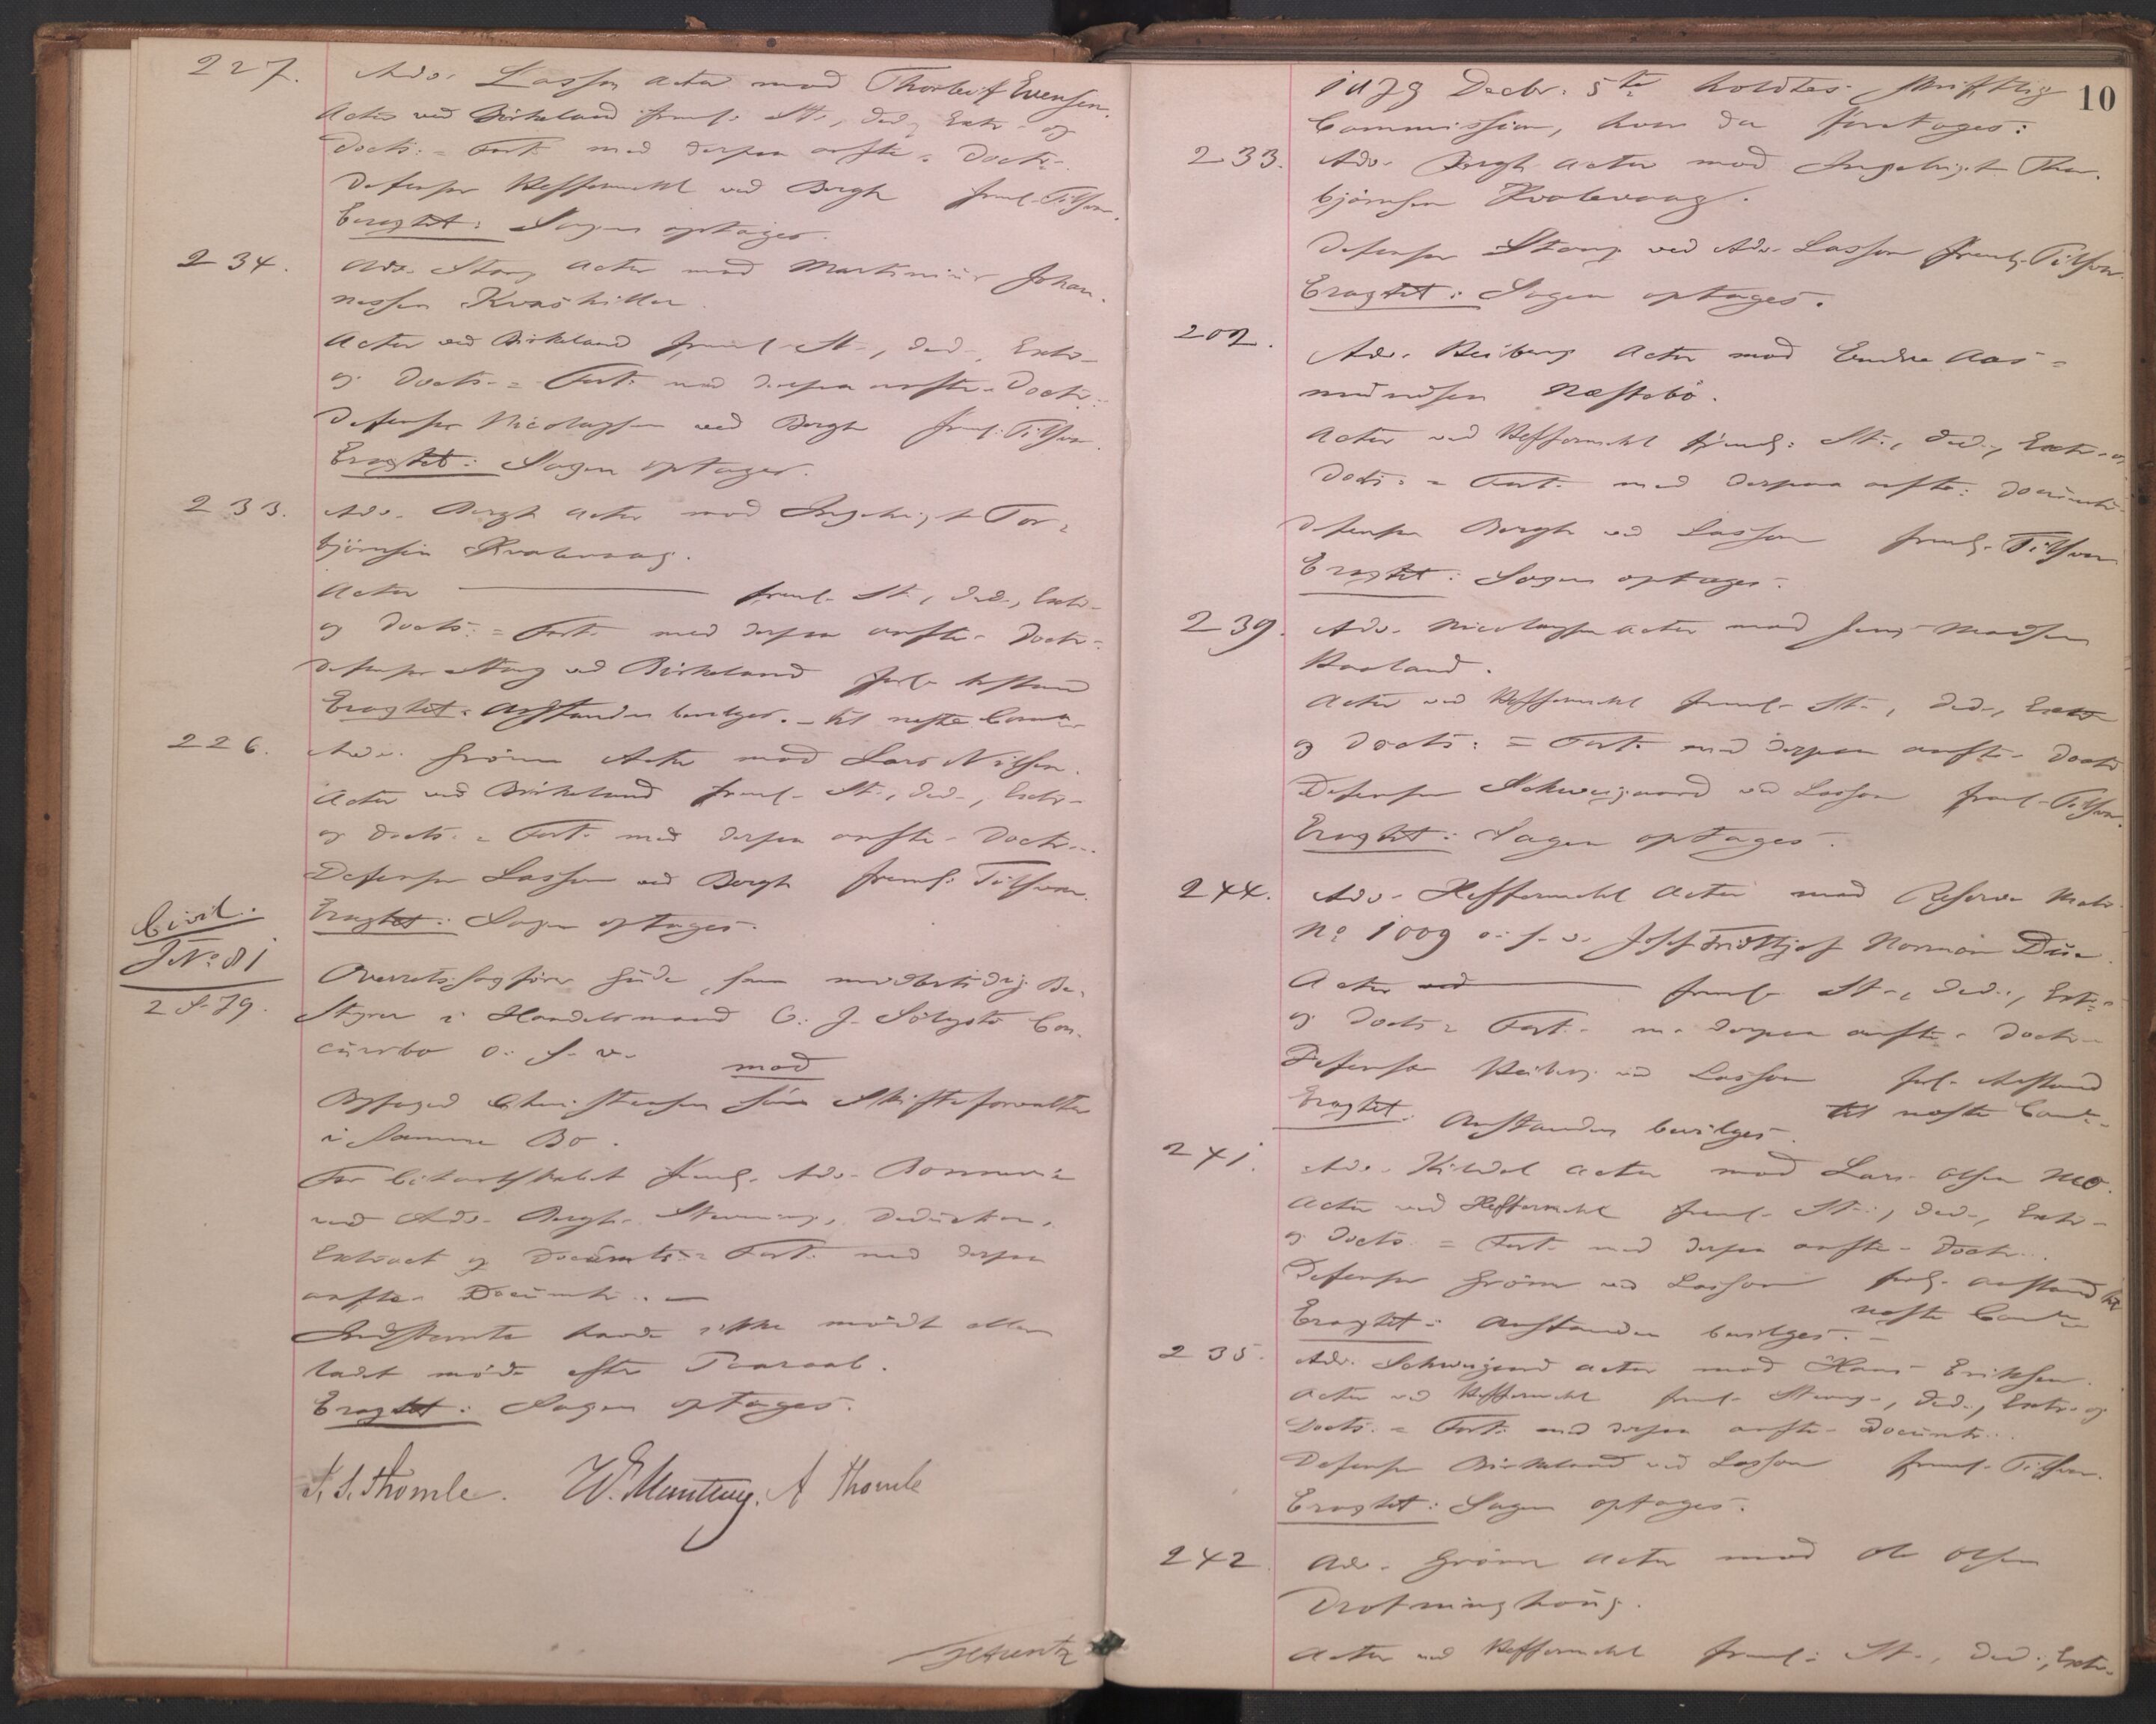 227. Adv. Lasson Actor mod Thorleif Evensen.
Actor ved Birkeland freml. St., Ded., Extr. og
Docts. = Fort. med derpaa anførte Doctr.
Defensor Heffermehl ved Bergh freml. Tilsvar.
Eragtet: Sagen optages.
234. Adv. Stang Actor mod Martinius Johan-
nessen Kvashiller.
Actor ved Birkeland freml. St., Ded., Extr.
og Docts. = Fort. med derpaa anførte Doctr.
Defensor Nicolaysen ved Bergh freml. Tilsvar.
Eragtet: Sagen optages.
233. Adv. Bergh Actor mod Ingebrigt Tor-
bjørnsen Kvalevaag.
Actor freml. St., Ded., Extr.
og Docts. = Fort. med derpaa anførte Doctr.
Defensor Stang ved Birkeland forl. Anstand
Eragtet: Anstanden bevilges. - til næste
226. Adv. Grönn Actor mod Lars Nilsen.
Actor ved Birkeland freml. St., Ded., Extr.
og Docts. = Fort. med derpaa anførte Doctr.
Defensor Lasson ved Bergh freml. Tilsvar.
Eragtet: Sagen optages.
Civil.
J No 81
2 S. 79.
Overretssagfører Gude, som midlertidig Be-
styrer i Handelsmand C. J. Con-
cursbo o. s. v.
mod
Byfoged Christensen som Skifteforvalter
i samme Bo.
For Citantskabet freml. Adv. Bonnevie
ved Adv. Bergh Stevning, Deduction,
Extract og Documts. = Fort. med derpaa
anførte Documtr.
Indstevnte havde ikke mødt eller
ladet møde efter Paaraab.
Eragtet: Sagen optages.
I. S. Thomle. A Thomle
10
1879 Decbr. 5te holdtes skriftlig
Commission, hvor da foretoges:
233. Adv. Bergh Actor mod Ingebrigt Thor-
bjørnsen Kvalevaag.
Defensor Stang ved Adv. Lasson freml. Tilsvar.
Eragtet: Sagen optages.
202. Adv. Heiberg Actor mod Endre Aas-
mundsen Næstebö.
Actor ved Heffermehl freml. St., Ded., Extr. og
Docts. = Fort. med derpaa anførte Documtr.
Defensor Bergh ved Lasson freml. Tilsvar
Eragtet: Sagen optages.
239. Adv. Nicolaysen Actor mod Jens Madsen
Haaland.
Actor ved Heffermehl freml. St., Ded., Extr.
og Docts. = Fort. med derpaa anførte Doctr
Defensor Schweigaard ved Lasson freml. Tilsvar.
Eragtet: Sagen optages.
244. Adv. Heffermehl Actor mod Reserve Matr.
No 1009 o. s. v. Josef Fridthjof Norman Due.
Actor ved freml. St., Ded., Extr.
og Docts = Fort. m. derpaa anførte Doctr
Defensor Heiberg ved Lasson forl. Anstand
til næste
Eragtet: Anstanden bevilges.
241. Adv. Kildal Actor mod Lars Olsen Mo.
Actor ved Heffermehl freml. St., Ded., Extr.
og Docts. = Fort. med derpaa anførte Doctr.
Defensor Grönn ved Lasson forl. Anstand til
næste
Eragtet: Anstanden bevilges.
235. Adv. Schweigaard Actor mod Hans Eriksen.
Actor ved Heffermehl freml. Stevng., Ded., Extr. og
Docts. = Fort. med derpaa anførte Documtr.
Defensor Birkeland ved Lasson freml. Tilsvar.
Eragtet: Sagen optages.
242 Adv. Grönn Actor mod Ole Olsen
Drotninghaug.
Actor ved Heffermehl freml. St., Ded., Extr.